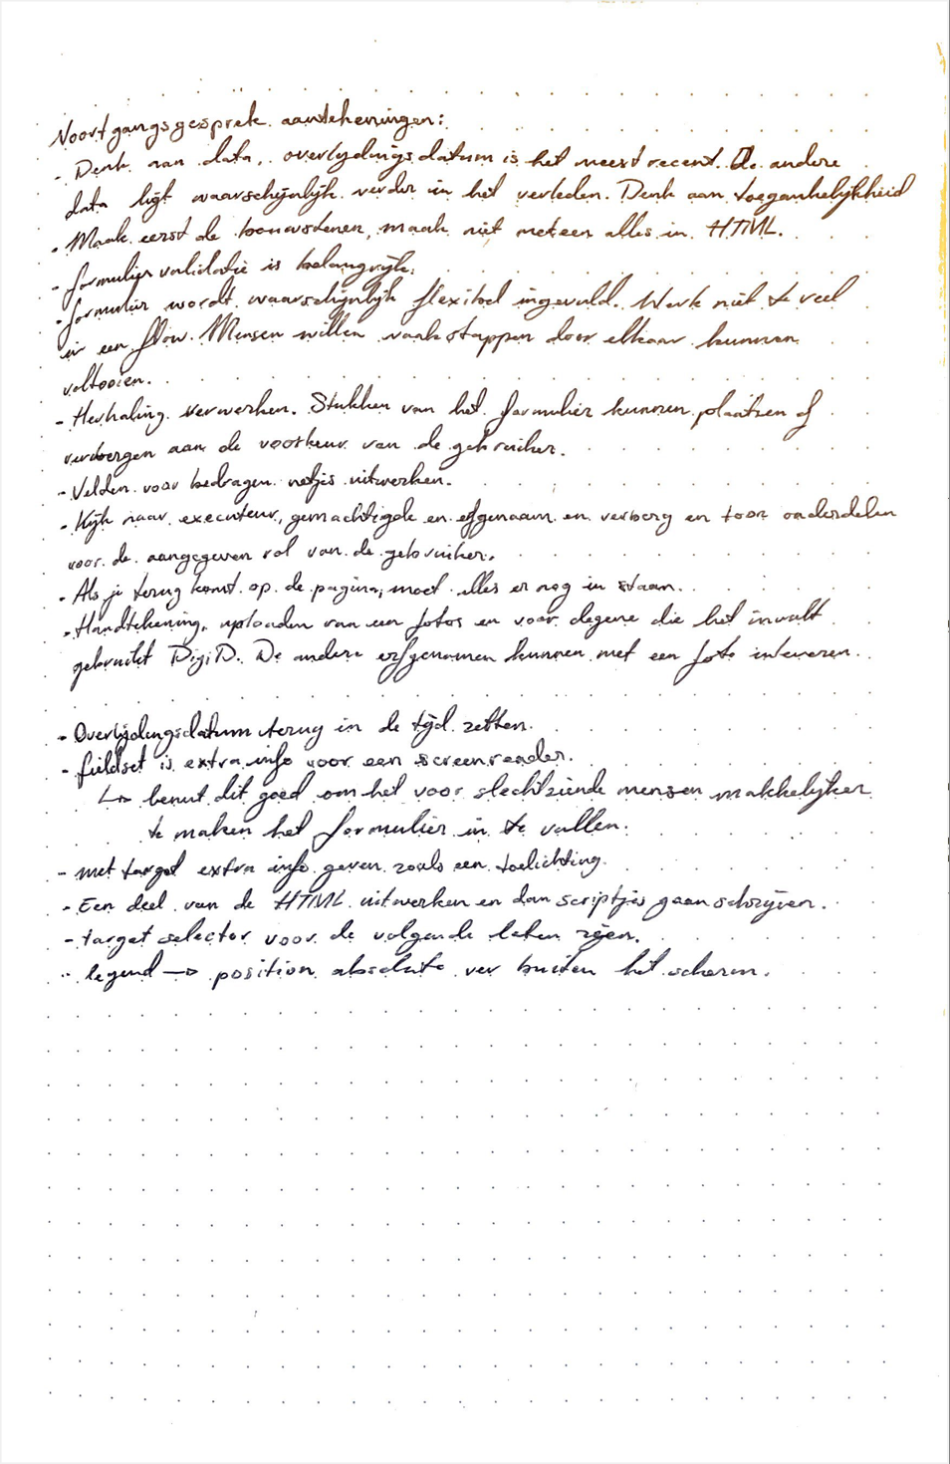 Voortgangsgesprek aantekeningen:
- Denk aan data, overlijdingsdatum is het meest recent. De andere
data ligt waarschijnlijk verder in het verleden. Denk aan toegankelijkheid
- Maak eerst de bouwstenen, maak niet meteen alles in HTML.
- formulier validatie is belangrijk.
- formulier wordt waarschijnlijk flexibel ingevuld. Werk niet te veel
in een flow. Mensen willen vaak stappen door elkaar kunnen
voltooien.
- Herhaling verwerken. Stukken van het formulier kunnen plaatsen of
verbergen aan de voorkeur van de gebruiker.
- Velden voor bedragen netjes uitwerken.
- Kijk naar executeur, gemachtigde en erfgenaam en verberg en toon onderdelen
voor de aangegeven rol van de gebruiker.
- Als je terug komt op de pagina, moet alles er nog in staan.
- Handtekening, uploaden van een fotos en voor degene die het invult
gebruikt DigiD. De andere erfgenamen kunnen met een foto inleveren.
- Overlijdingsdatum terug in de tijd zetten.
- fieldset is extra info voor een screenreader.
↳ benut dit goed om het voor slechtziende mensen makkelijker
te maken het formulier in te vullen.
- met target extra info geven zoals een toelichting.
- Een deel van de HTML uitwerken en dan scriptjes gaan schrijven.
- target selector voor de volgende laten zien.
- legend → position absolute ver buiten het scherm.